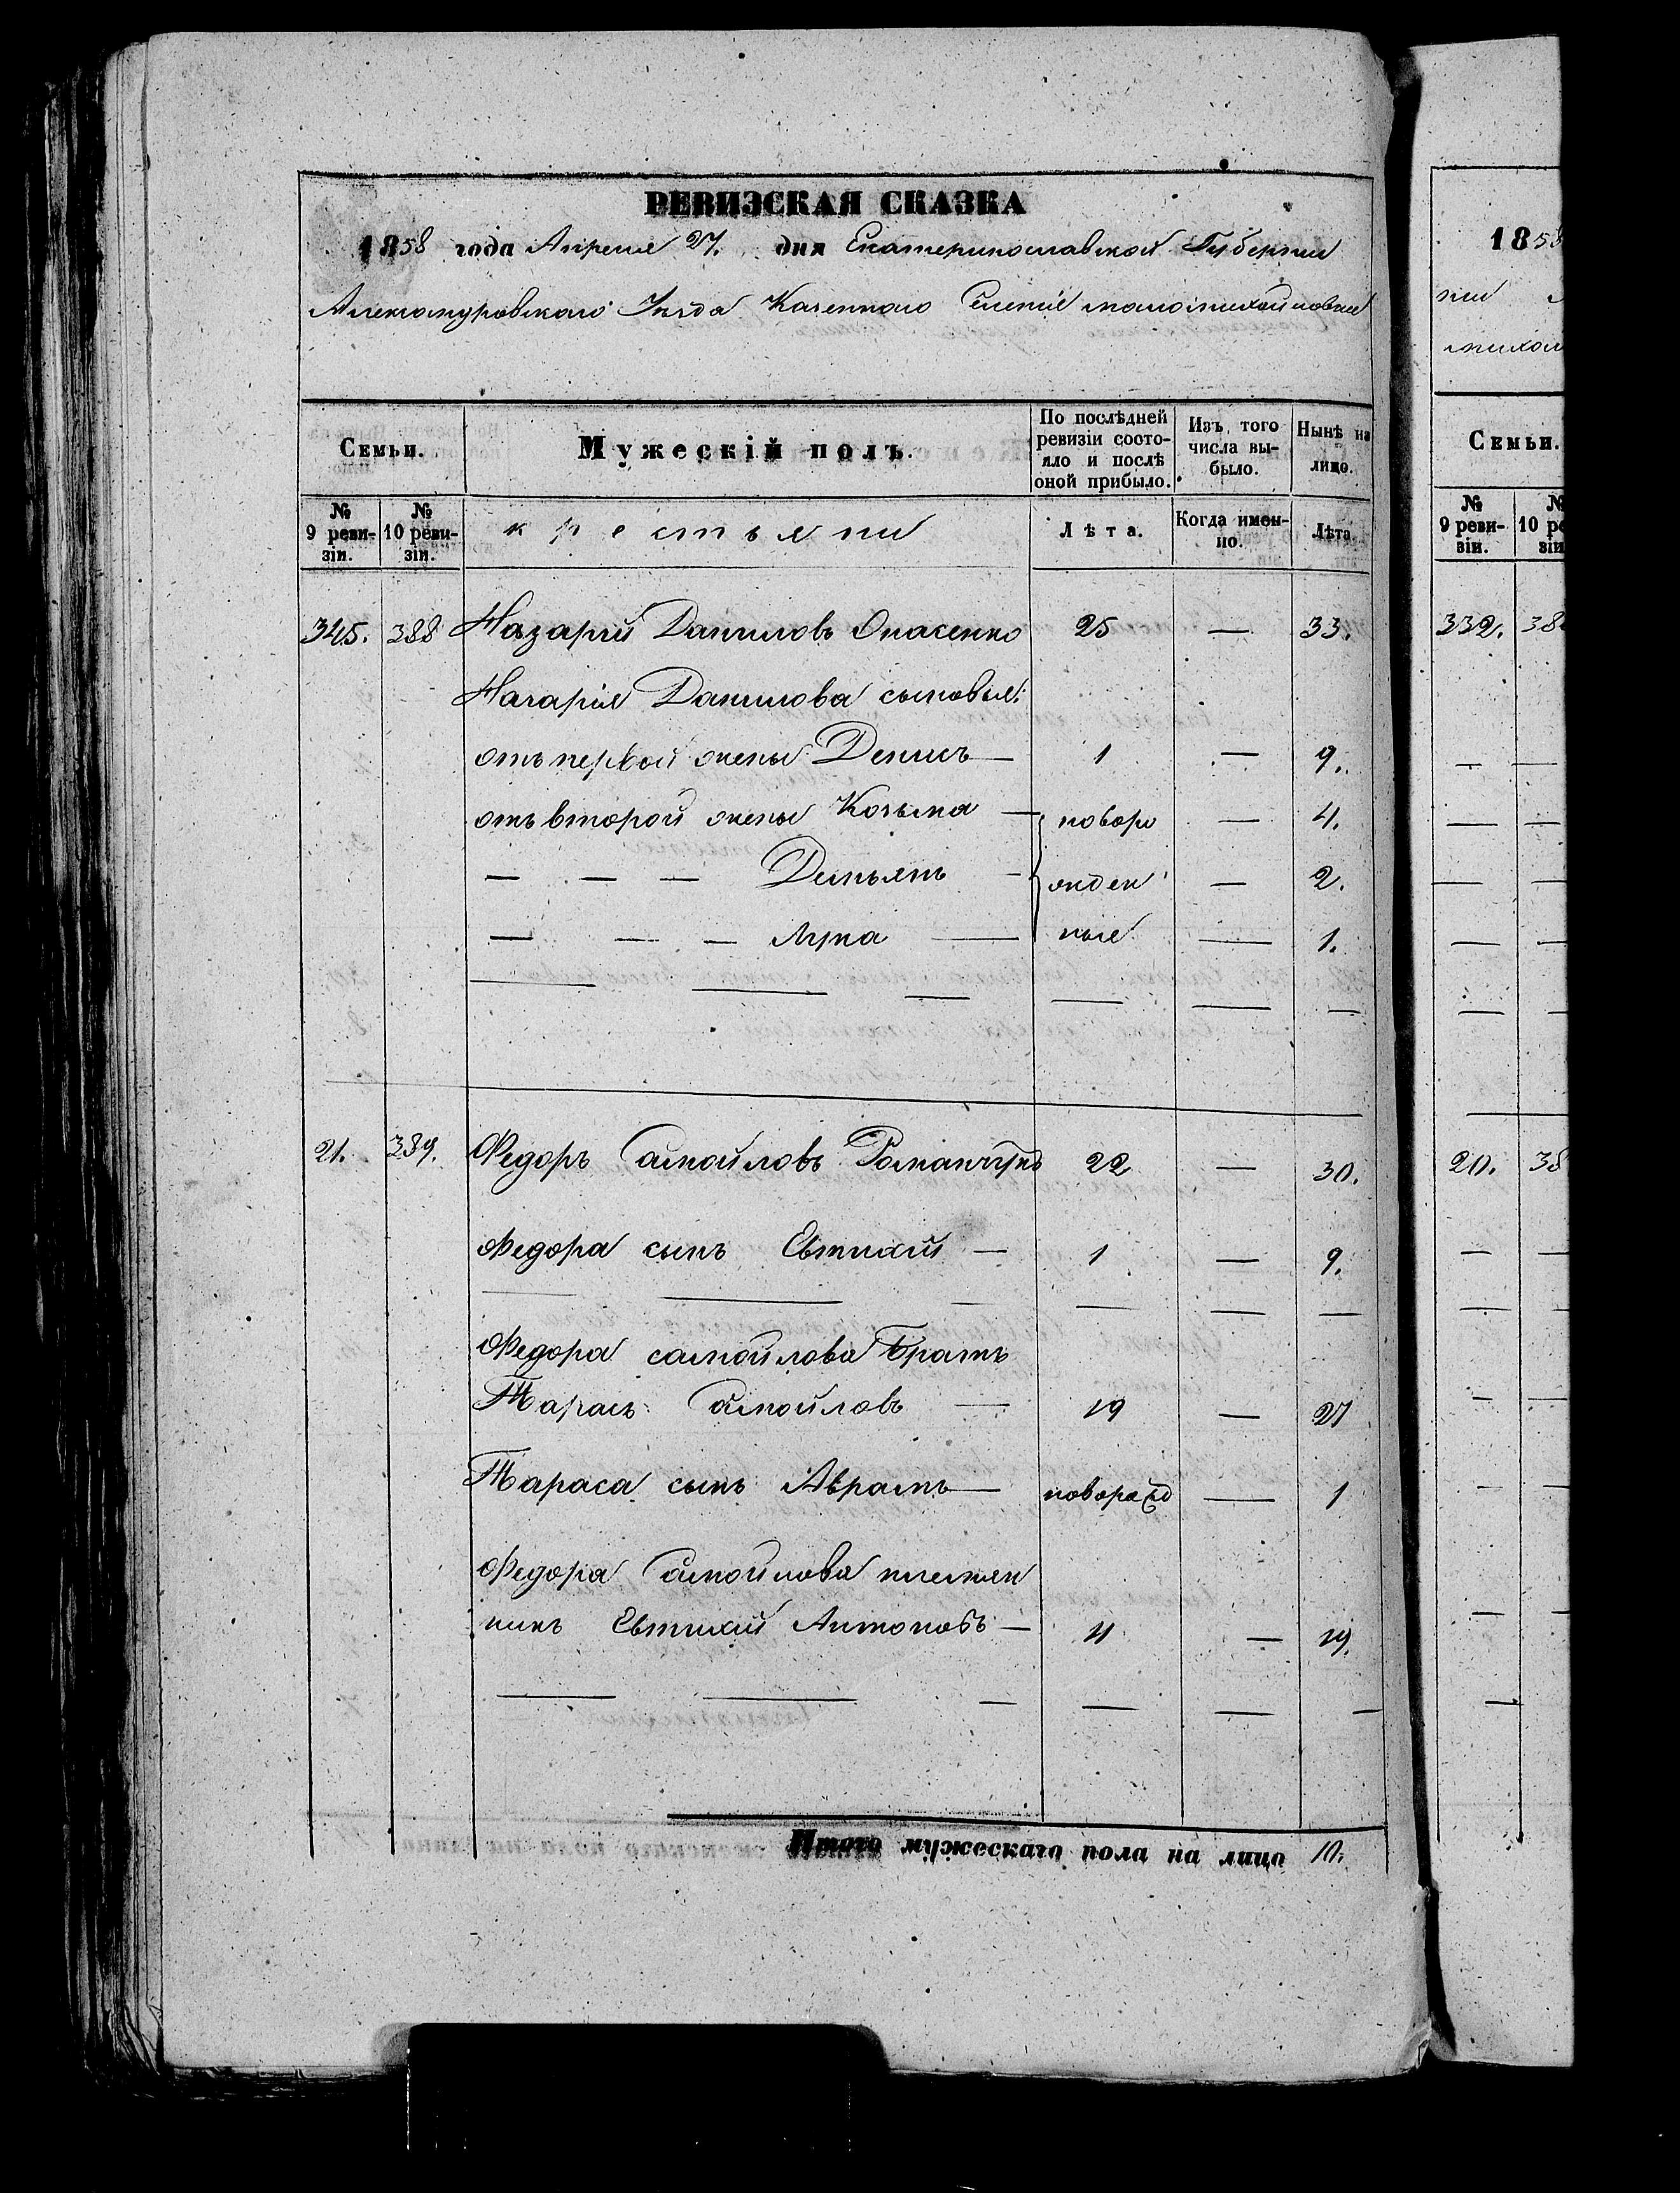 РЕВИЗСКАЯ СКАЗКА
1858 года Апреля 27. дня Екатеринославской Губерніи
Александровскаго Уезда Казеннаго Селенія маломихайловки
Семьи.
Мужескій полъ.
По послѣдней ревизіи состояло и послѣ оной прибыло.
Изъ того числа выбыло.
Нынѣ на лицо.
№ 9 ревизіи.
№ 10 ревизіи.
крестьяни
Лѣта.
Когда именно.
Лѣта
345. 388 Назарій Даниловъ Опасенко 25 — 33.
Назарія Данилова сыновья:
отъ первой жены Денисъ — 1 — 9.
отъ второй жены Козьма — новоро — 4.
— — — Демьянъ — жден — 2.
— — — Лука — ные — 1.
21. 389. Федоръ Самойловъ Романчукъ 22 — 30.
Федора сынъ Евтихій — 1 — 9.
Федора самойлова Братъ
Тарасъ Самойловъ — 19 — 27
Тараса сынъ Абрамъ — поворожд — 1
Федора Самойлова племян
никъ Евтихій Антоновъ — 11 — 19.
Итого мужескаго пола на лицо 10.
1858
ни
михай
Семьи.
№ 9 ревизіи.
332. 38
20. 38